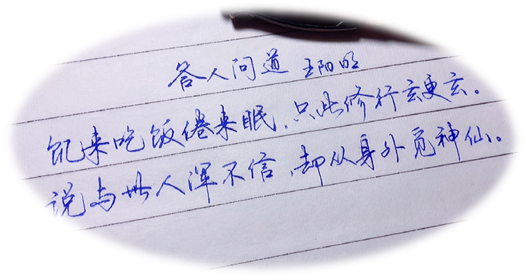 答人问道 王阳明
饥来吃饭倦来眠，只此修行玄更玄。
说与世人浑不信，却从身外觅神仙。